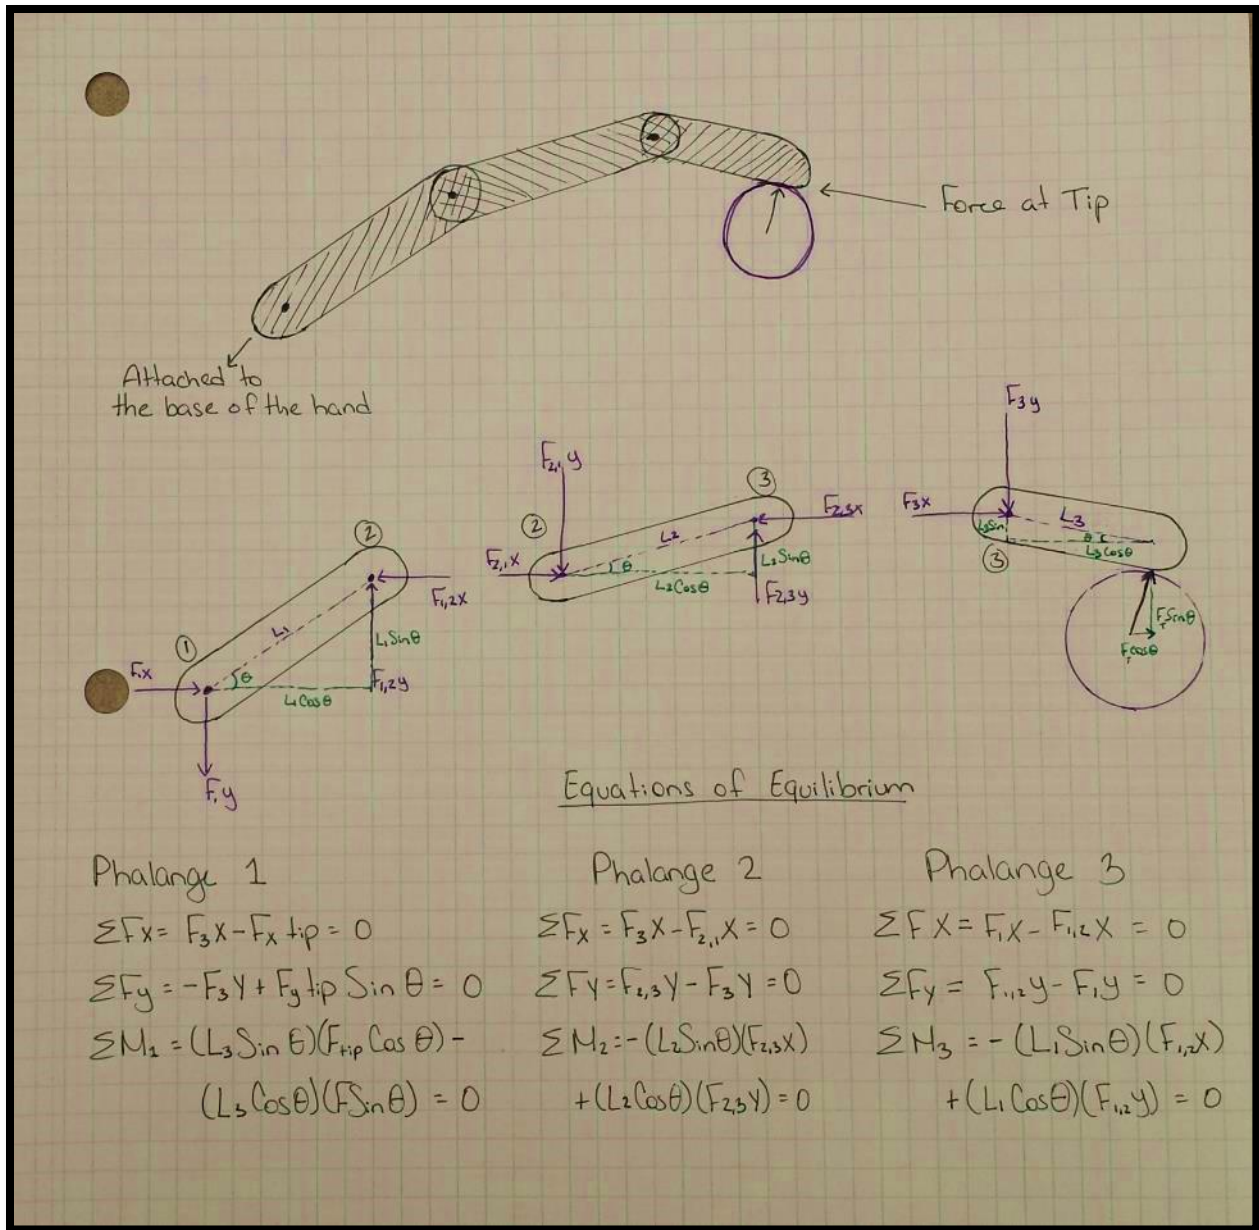 Force at Tip
Attached to
the base of the hand
F₁x
①
L₁
θ
L₁Cosθ
F₁y
②
F₁,₂x
L₁Sinθ
F₁,₂y
F₂,₁y
②
F₂,₁x
L₂
θ
L₂Cosθ
③
F₂,₃x
L₂Sinθ
F₂,₃y
F₃y
F₃x
L₃Sin
③
L₃
θ
L₃Cosθ
FₜSinθ
FₜCosθ
Equations of Equilibrium
Phalange 1
ΣFx = F₃x - Fx tip = 0
ΣFy = -F₃y + Fy tip Sin θ = 0
ΣM₁ = (L₃Sin θ)(Ftip Cos θ) -
(L₃Cosθ)(FSinθ) = 0
Phalange 2
ΣFx = F₃x - F₂,₁x = 0
ΣFy = F₂,₃y - F₃y = 0
ΣM₂ = -(L₂Sinθ)(F₂,₃x)
+(L₂Cosθ)(F₂,₃y) = 0
Phalange 3
ΣFx = F₁x - F₁,₂x = 0
ΣFy = F₁,₂y - F₁y = 0
ΣM₃ = -(L₁Sinθ)(F₁,₂x)
+(L₁Cosθ)(F₁,₂y) = 0